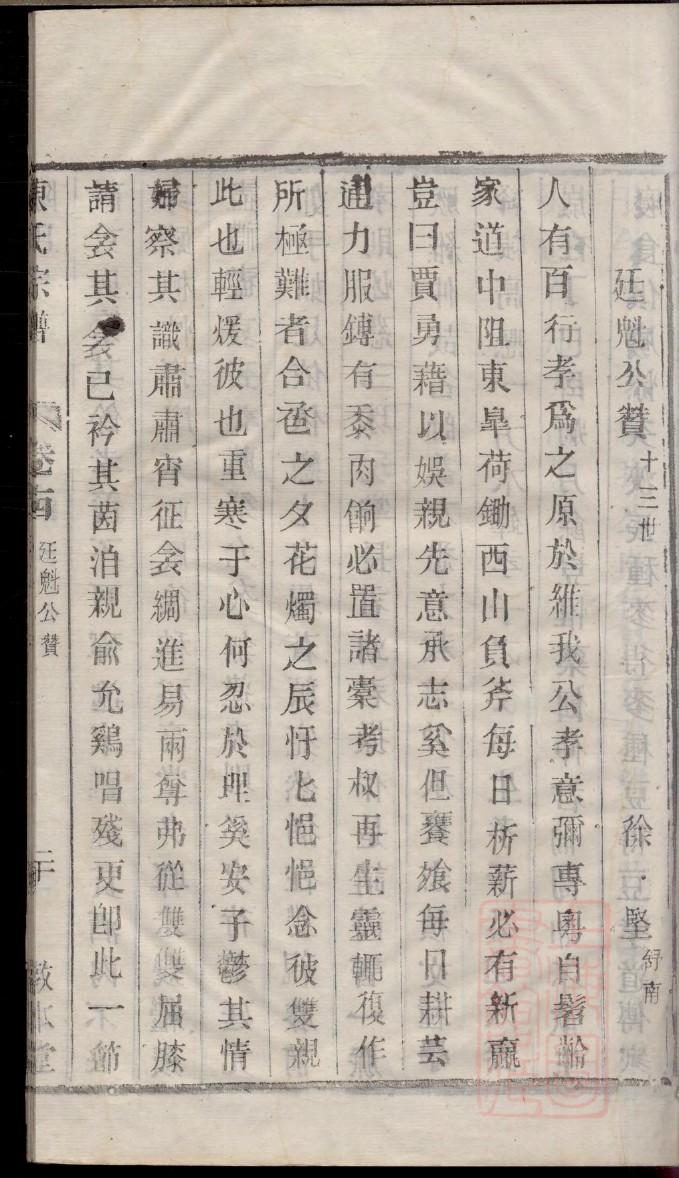 廷魁公贊 十三世 徐一堅 舒南
人有百行孝爲之原於維我公孝意彌專粵自髫齡
家道中阻東臯荷鋤西山負斧每日析薪必有新羸
豈曰賈勇藉以娛親先意承志奚但饔飧每日耕芸
通力服鎛有黍肉餉必置諸橐考叔再生靈輒復作
所極難者合卺之夕花燭之辰忬匕悒悒念彼雙親
此也輕煖彼也重寒于心何忍於理奚安子鬱其情
婦察其識肅肅宵征衾綢進易兩尊弗從雙雙屈膝
請衾其衾已衿其茵洎親俞允鷄唱殘更卽此一節
陳氏宗譜 卷十四 廷魁公贊 二十 敦本堂